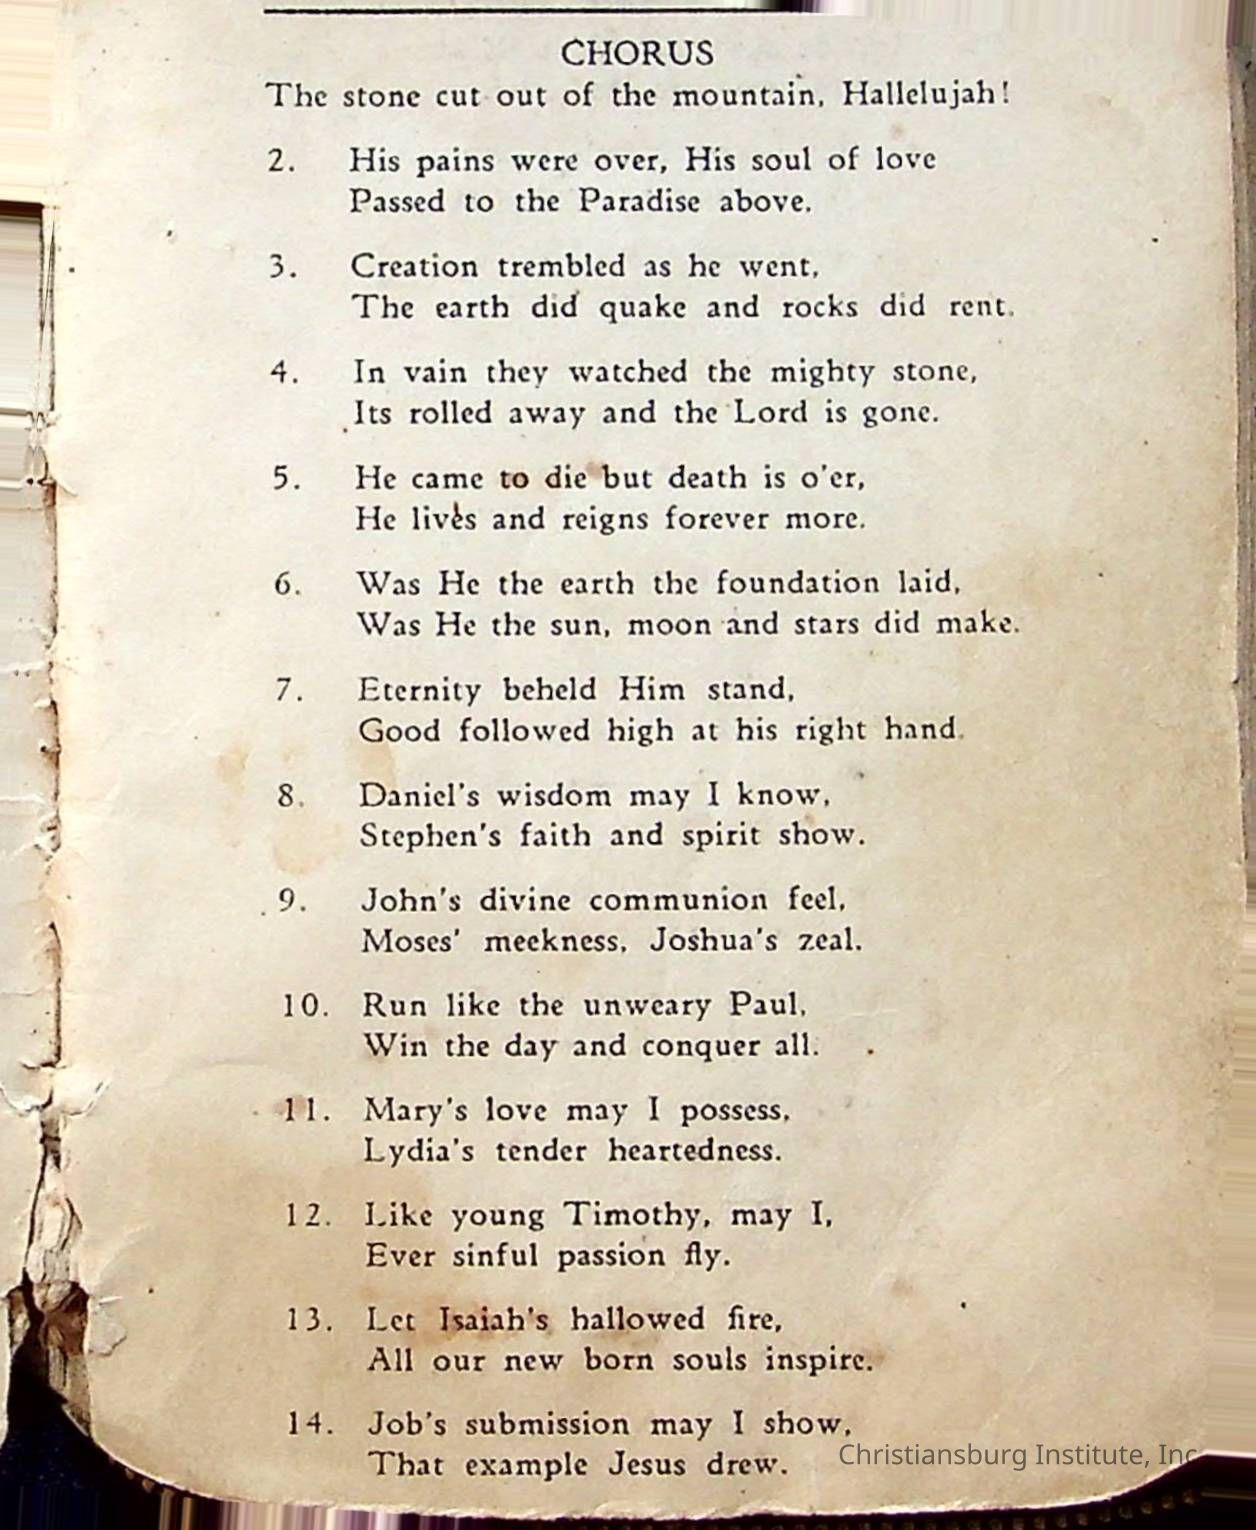 CHORUS
The stone cut out of the mountain, Hallelujah!
2. His pains were over, His soul of love
Passed to the Paradise above.
3. Creation trembled as he went,
The earth did quake and rocks did rent.
4. In vain they watched the mighty stone,
Its rolled away and the Lord is gone.
5. He came to die but death is o'er,
He lives and reigns forever more.
6. Was He the earth the foundation laid,
Was He the sun, moon and stars did make.
7. Eternity beheld Him stand,
Good followed high at his right hand.
8. Daniel's wisdom may I know,
Stephen's faith and spirit show.
9. John's divine communion feel,
Moses' meekness, Joshua's zeal.
10. Run like the unweary Paul,
Win the day and conquer all.
11. Mary's love may I possess,
Lydia's tender heartedness.
12. Like young Timothy, may I,
Ever sinful passion fly.
13. Let Isaiah's hallowed fire,
All our new born souls inspire.
14. Job's submission may I show,
That example Jesus drew.
Christiansburg Institute, Inc